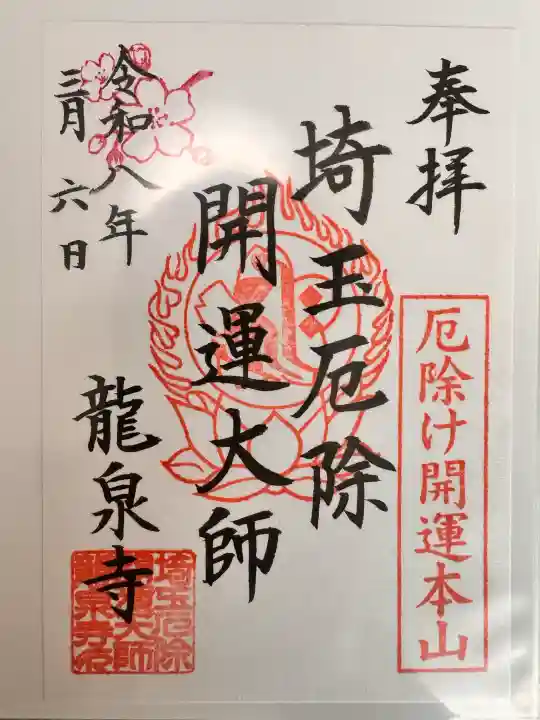 奉拝
厄除け開運本山
埼玉厄除
開運大師
龍泉寺
令和八年
三月六日
埼玉厄除
開運大師
龍泉寺印